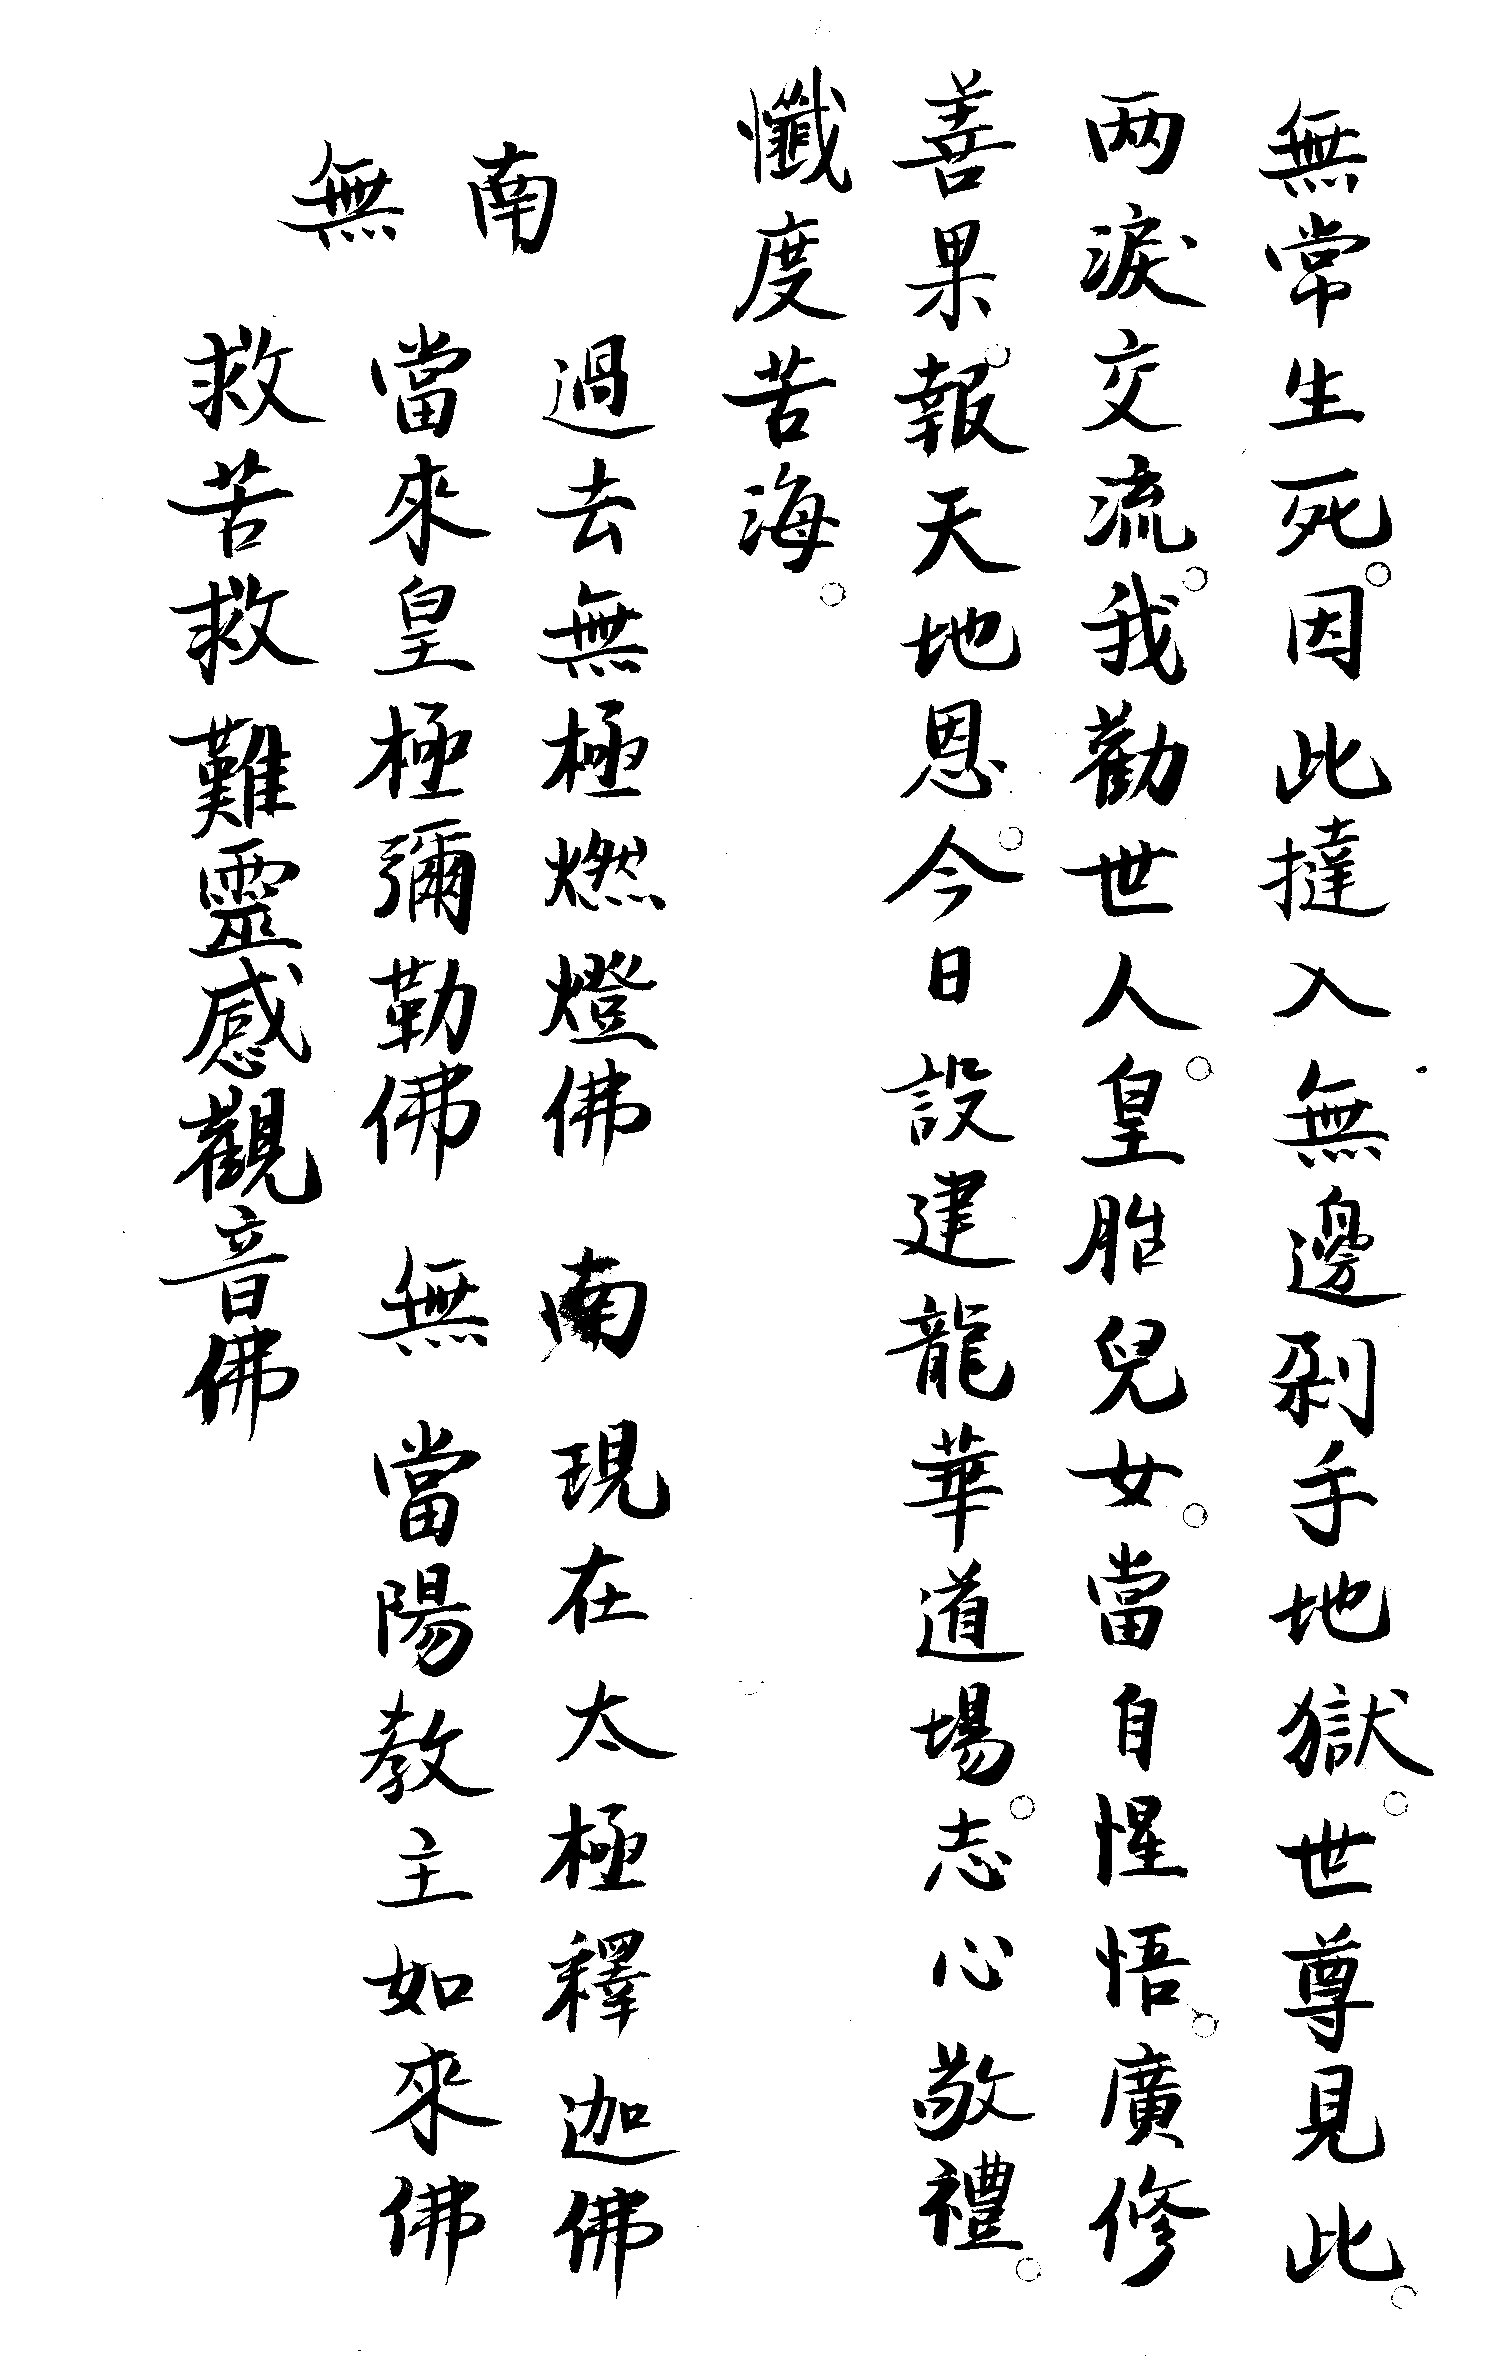 無常生死。因此撻入無邊剁手地獄。世尊見此。
两淚交流。我勸世人。皇胎兒女。當自惺悟。廣修
善果。報天地恩。今日設建龍華道場。志心敬禮。
懺度苦海。
南無
過去無極燃燈佛 南 現在太極釋迦佛
當來皇極彌勒佛 無 當陽教主如來佛
救苦救難靈感觀音佛